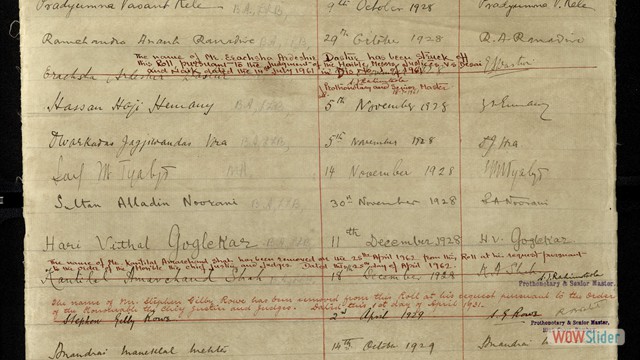 Pradyumna Vasant Kele B.A., LL.B. 9th October 1928 Pradyumna V. Kele
Ramchandra Anant Ranadive 29th October 1928 R. A. Ranadive
The name of Mr. Erachsha Ardeshir Dastur has been struck off
this Roll pursuant to the Judgment of the Hon'ble
and dated the 14th July 1961
Erachsha Ardeshir
Prothonotary and Senior Master
Hassan Haji Hemany B.A., LL.B. 5th November 1928
Dwarkadas Jagjiwandas Vora B.A., LL.B. 5th November 1928
Saif M. Tyabji B.A. 14 November 1928
Sultan Alladin Noorani 30th November 1928 S A Noorani
Hari Vithal Goglekar B.A., LL.B. 11th December 1928 H. V. Goglekar
The name of Mr. Kantilal Amarchand Shah, has been removed on the 25th April 1962 from this Roll at his request pursuant
to the order of the Honorable the Chief Justice and Judges. Dated this day of April 1962.
Kantilal Amarchand Shah 18 December 1928 K. A. Shah
Prothonotary & Senior Master.
The name of Mr. Stephen Gilby Rowe has been removed from this Roll at his request pursuant to the order
of the Honourable the Chief Justice and Judges. Dated this 1st day of April 1931.
Stephen Gilby Rowe 2nd April 1929 S G Rowe
Prothonotary & Senior Master
Anandrai Maneklal Mehta 14th October 1929 Anandrai